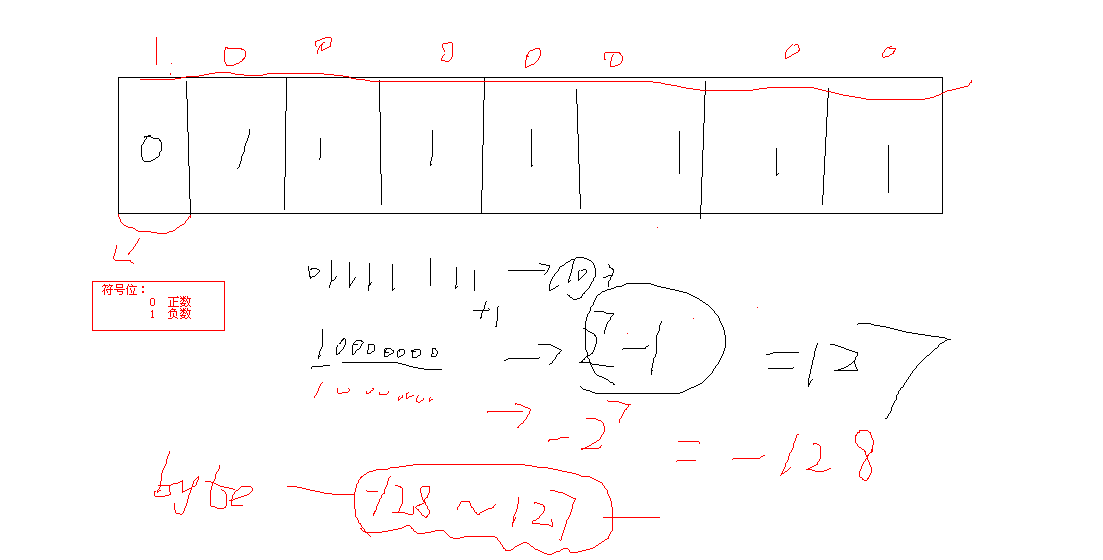 1 0 0 0 0 0 0 0
0 1 1 1 1 1 1 1
符号位：
0 正数
1 负数
01111111 → (10)
+1
10000000 → 2^7-1 =127
10000000 → -2^7 = -128
byte -128 ~ 127